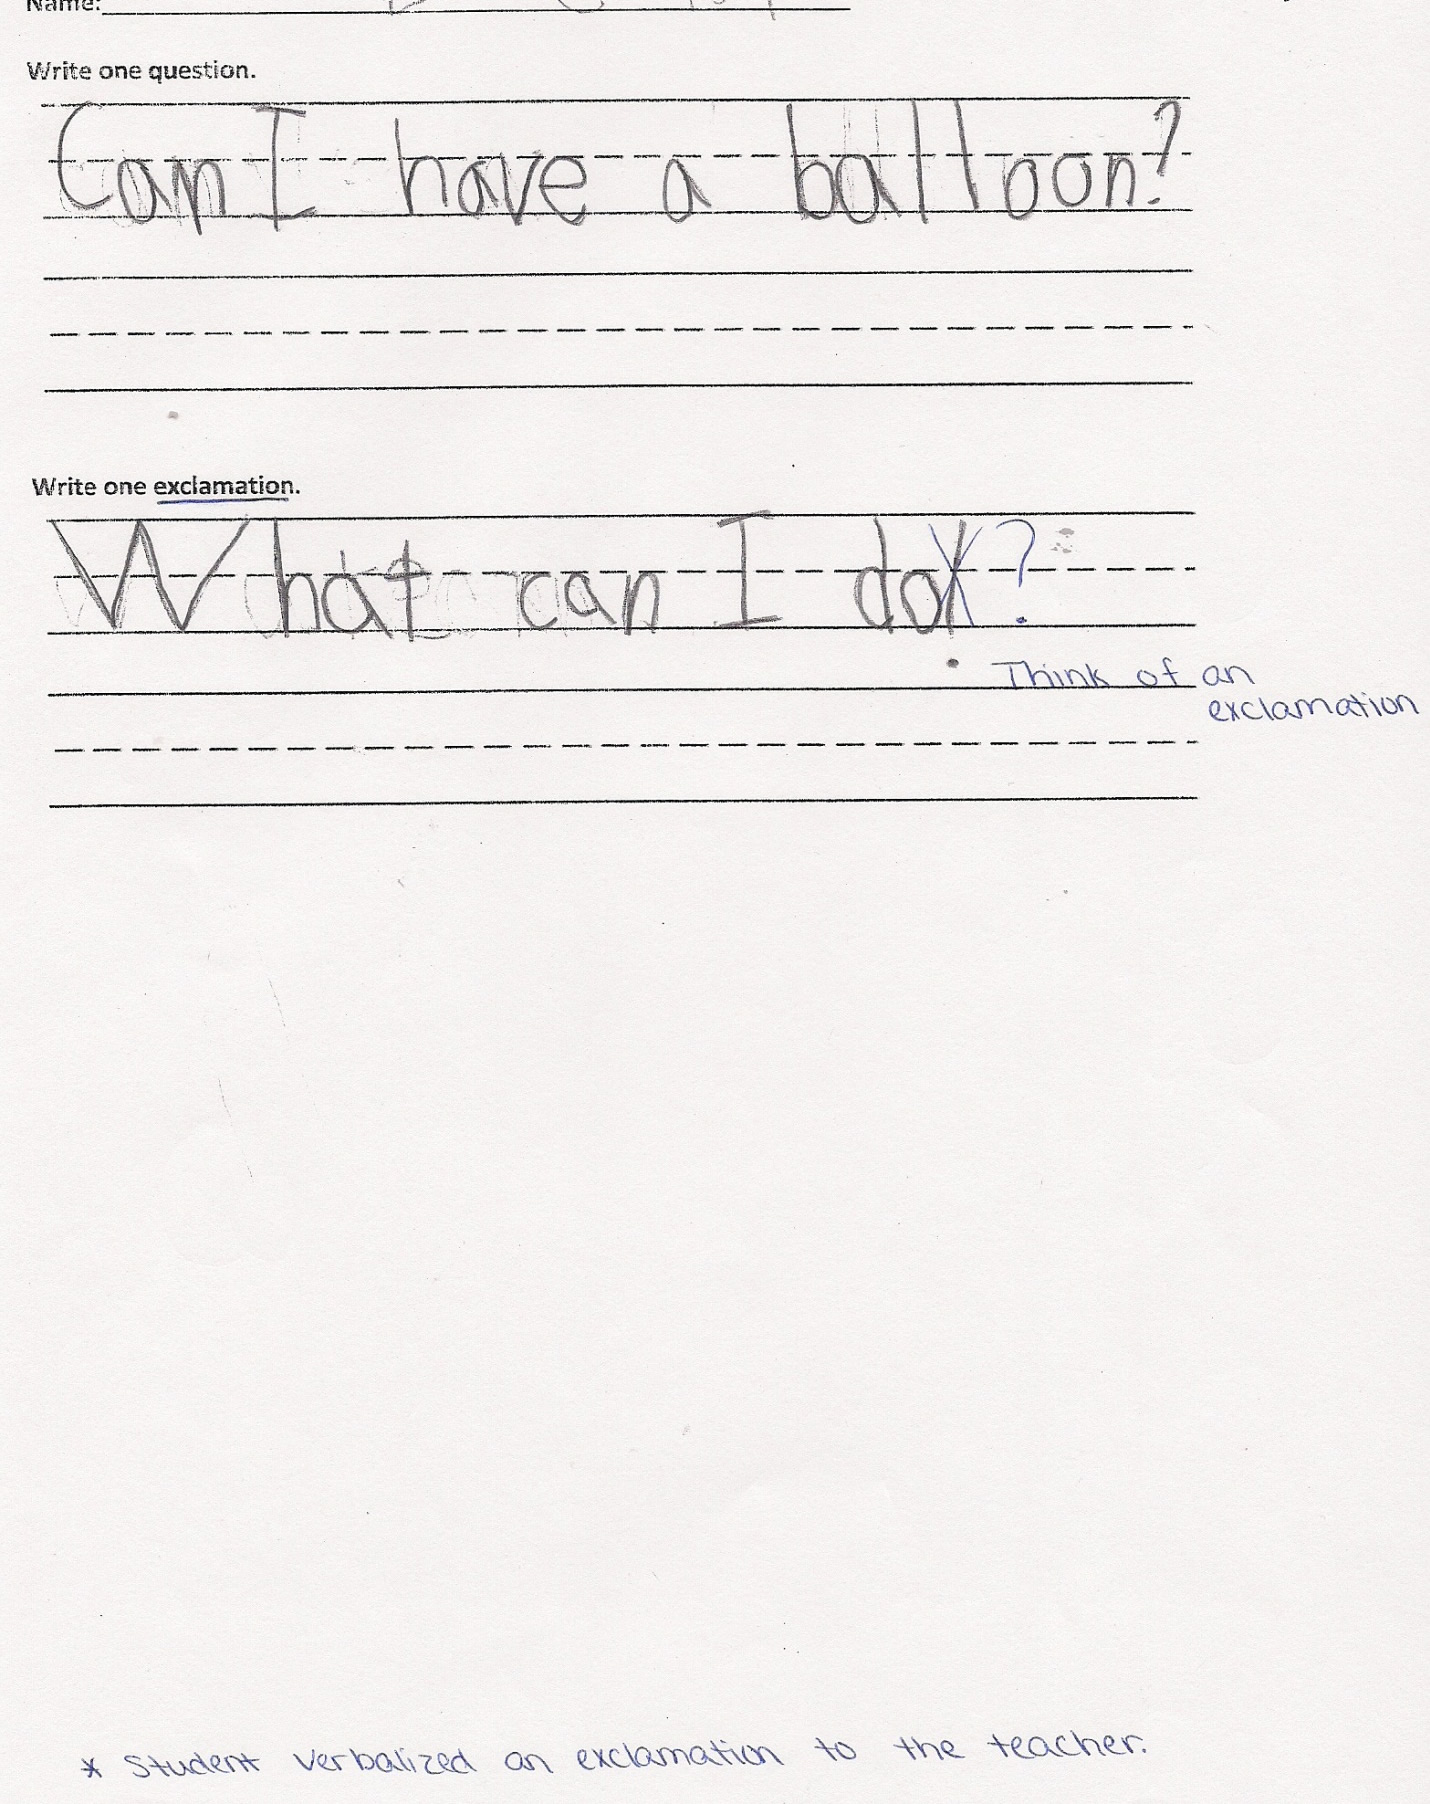 Name:
Write one question.
Can I have a balloon?
Write one exclamation.
What can I do!?
Think of an
exclamation
* Student verbalized an exclamation to the teacher.